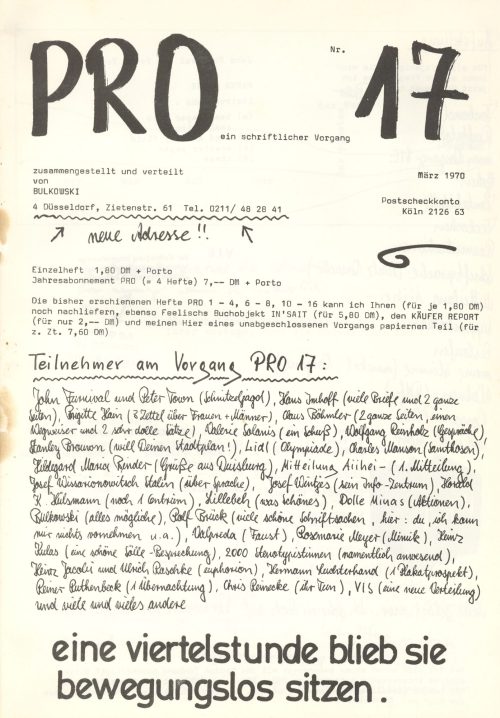 PRO Nr. 17
ein schriftlicher Vorgang
zusammengestellt und verteilt
von
BULKOWSKI
März 1970
4 Düsseldorf, Zietenstr. 61 Tel. 0211/ 48 28 41
Postscheckkonto
Köln 2126 63
neue Adresse!!
Einzelheft 1,80 DM + Porto
Jahresabonnement PRO (= 4 Hefte) 7,-- DM + Porto
Die bisher erschienenen Hefte PRO 1 - 4, 6 - 8, 10 - 16 kann ich Ihnen (für je 1,80 DM)
noch nachliefern, ebenso Feelischs Buchobjekt IN'SAIT (für 5,80 DM), den KÄUFER REPORT
(für nur 2,-- DM) und meinen Hier eines unabgeschlossenen Vorgangs papiernen Teil (für
z. Zt. 7,60 DM)
Teilnehmer am Vorgang PRO 17:
John Furnival und Peter (Schnitzeljagd), Hans Imhoff (viele Briefe und 2 ganze
Seiten), Brigitte Hain (3 Zettel über Frauen + Männer), Claus Böhmler (2 ganze Seiten, einen
Wegweiser und 2 sehr dolle Sätze), Valerie Solanis (ein Schuß), Wolfgang Reinholz (Gespräche),
Stanley Brouwn (will Deinen Stadtplan!), Lidl (Olympiade), Charles Manson (Samthosen),
Hildegard Maria (Grüße aus Duisburg), Mitteilung Aiihei - (1. Mitteilung),
Josef Wissarionowitsch Stalin (über Sprache), Josef Wintjes (sein Info-Zentrum), Harald
K. Hülsmann (noch 1 Centrum), Lillebeh (was schönes), Dolle Minas (Aktionen),
Bulkowski (alles mögliche), Rolf Brück (viele schöne Schriftsachen, hier: du, ich kann
mir nichts vornehmen u.a.), (Faust), Rosemarie Meyer (Mimik), Heinz
(eine schöne Sätle-Besprechung), 2000 Stenotypistinnen (namentlich anwesend),
Heinz Jacobi und Ulrich Raschke (euphorion), Hermann Luchterhand (1 Plakatprospekt),
Reiner Ruthenbeck (1 Übernachtung), Chris Reinecke (ihr Tun), VIS (eine neue Verteilung)
und viele und vieles andere
eine viertelstunde blieb sie
bewegungslos sitzen.